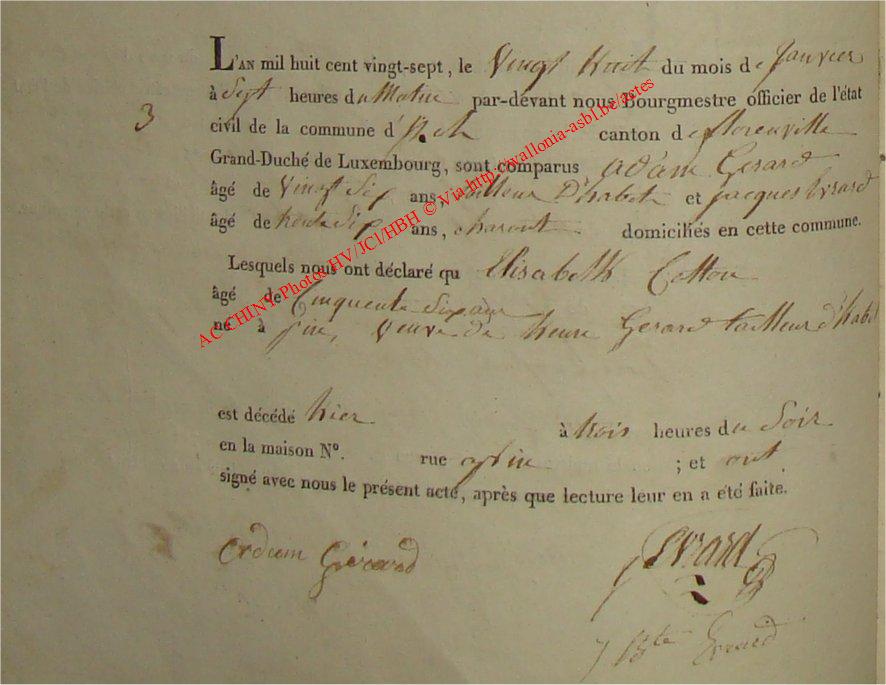 L'AN mil huit cent vingt-sept, le Vingt huit du mois de Janvier
3
à Sept heures du Matin par-devant nous Bourgmestre officier de l'état
civil de la commune d' canton de florenville
Grand-Duché de Luxembourg, sont comparus adam Gerard
âgé de Vingt Six ans, tailleur D'habit et jacques Evrard
âgé de trente Six ans, charont domiciliés en cette commune.
Lesquels nous ont déclaré qu Elisabeth Cotton
âgé de Cinquente Six ans
né à pin, Veuve de henri Gerard tailleur d'habit
est décédé hier à trois heures du Soir
en la maison N°. rue a pin ; et ont
signé avec nous le présent acte, après que lecture leur en a été faite.
adam Gérard
J Evrard
J Bte Evrard
AC CHINY Photos HV/JCl/HBH © Via http://wallonia-asbl.be/actes